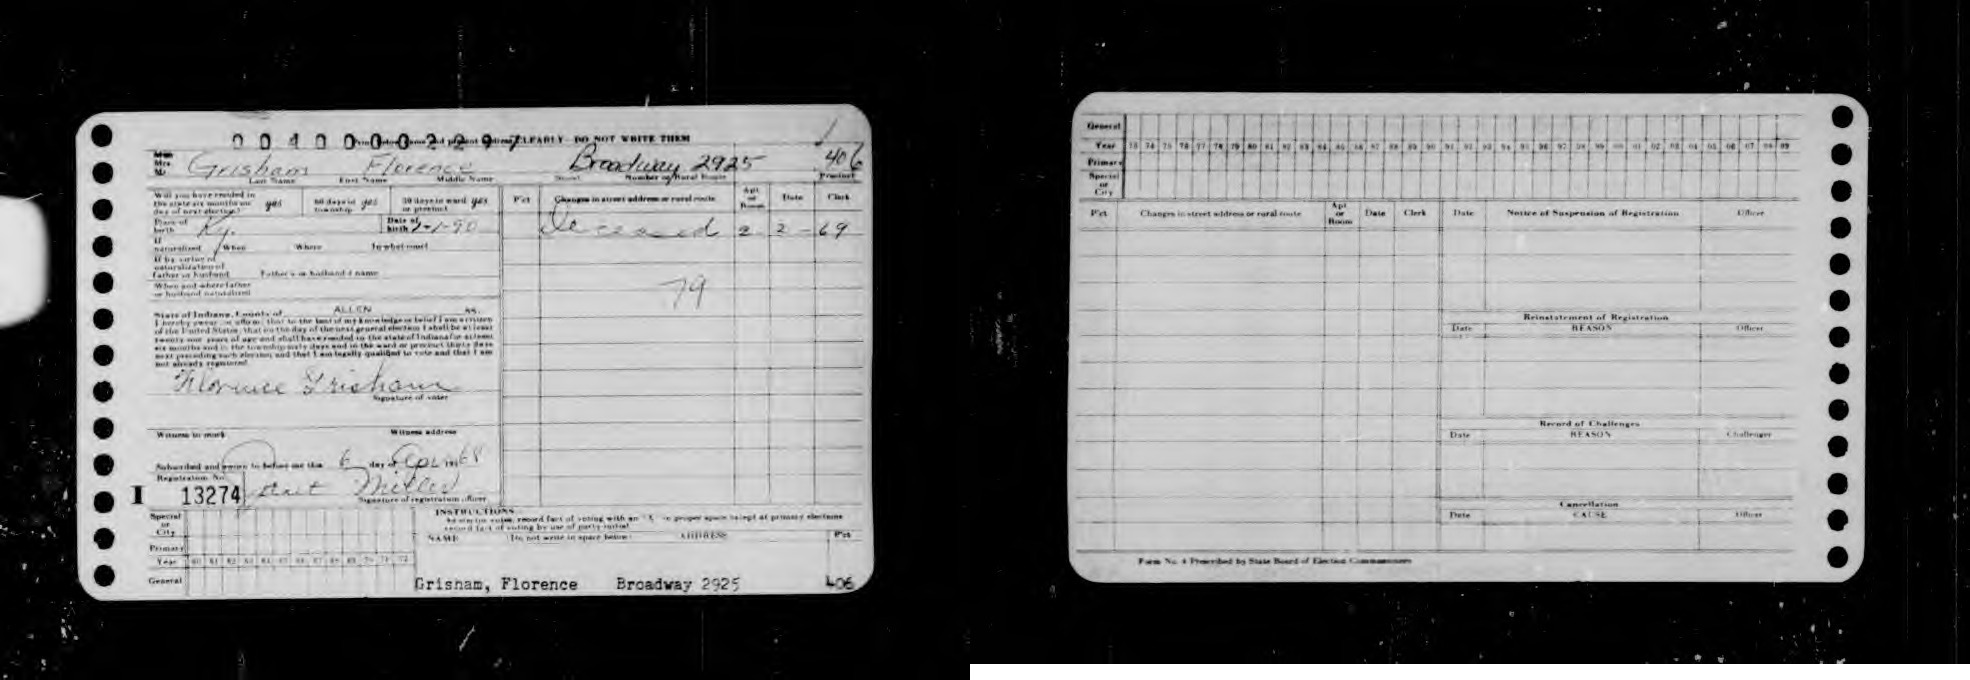 0 0 4 0 0 0 0 2 2 9 7 CLEARLY - DO NOT WRITE THEM
Miss
Mrs.
Mr. Grisham Florence Broadway 2925 406
Last Name First Name Middle Name Street Number or Rural Route Precinct
Will you have resided in the state six months on day of next election? yes 60 days in township yes 30 days in ward or precinct yes
Place of birth Ky. Date of birth
If naturalized When Where In what court
If by virtue of naturalization of father or husband Father's or husband's name
When and where father or husband naturalized
P'ct Changes in street address or rural route Apt or Room Date Clerk
Deceased 2 2-69
79
State of Indiana, County of ALLEN ss.
I hereby swear or affirm that to the best of my knowledge or belief I am a citizen
of the United States, that on the day of the next general election I shall be at least
twenty-one years of age and shall have resided in the state of Indiana for at least
six months and in the township sixty days and in the ward or precinct thirty days
next preceding such election and that I am legally qualified to vote and that I am
not already registered.
Florence Grisham
Signature of voter
Witness to mark Witness address
Subscribed and sworn to before me this 6 day of 1968
Registration No.
I 13274 Miller
Signature of registration officer
Special or City
Primary
Year 60 61 62 63 64 65 66 67 68 69 70 71 72
General
INSTRUCTIONS
As elector votes, record fact of voting with an "X" in proper space except at primary elections
record fact of voting by use of party initial
NAME (Do not write in space below) ADDRESS P'ct
Grisham, Florence Broadway 2925 406
General
Year 73 74 75 76 77 78 79 80 81 82 83 84 85 86 87 88 89 90 91 92 93 94 95 96 97 98 99 00 01 02 03 04 05 06 07 08 09
Primary
Special or City
P'ct Changes in street address or rural route Apt or Room Date Clerk Date Notice of Suspension of Registration Officer
Reinstatement of Registration
Date REASON Officer
Record of Challenges
Date REASON Challenger
Cancellation
Date CAUSE Officer
Form No. 4 Prescribed by State Board of Election Commissioners